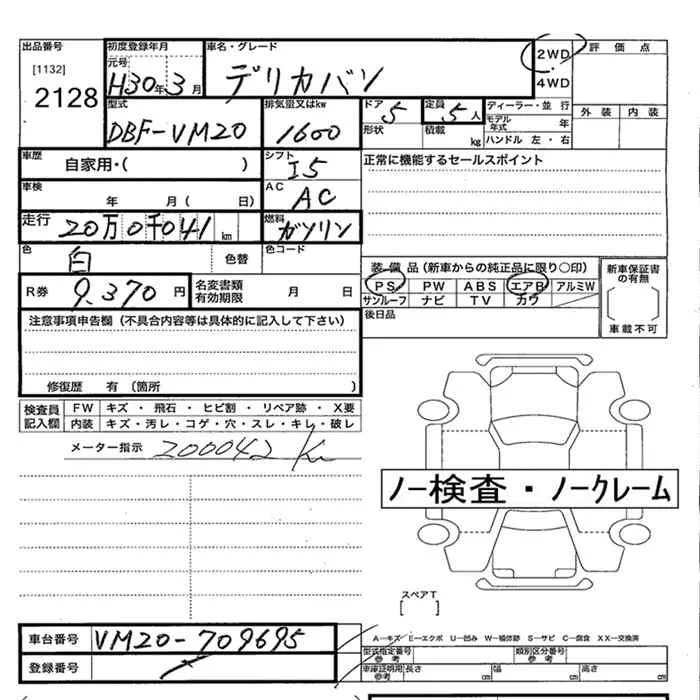 出品番号 初度登録年月 車名・グレード 2WD・4WD 評価点
[1132] 元号 H30年3月 デリカバン
2128
型式 排気量又はkw ドア 5 定員 5人 ディーラー・並行
DBF-VM20 1600 形状 積載 kg モデル年式 年 外装 内装
ハンドル 左・右
車歴 自家用・( ) シフト I5 正常に機能するセールスポイント
車検 年 月( 日) AC AC
走行 20万0千041km 燃料 ガソリン
色 白 色替 色コード
装備品(新車からの純正品に限り○印) 新車保証書の有無
R券 9,370円 名変書類有効期限 月 日 PS PW ABS エアB アルミW
サンルーフ ナビ TV カワ
車載不可
注意事項申告欄(不具合内容等は具体的に記入して下さい) 後日品
修復歴 有(箇所 )
検査員記入欄 FW キズ・飛石・ヒビ割・リペア跡・X要
内装 キズ・汚レ・コゲ・穴・スレ・キレ・破レ
メーター指示 200042 Km
ノー検査・ノークレーム
スペアT
[ ]
車台番号 VM20-709695 A―キズ E―エクボ U―凹み W―補修跡 S―サビ C―腐食 XX―交換済
登録番号 型式指定番号 参考 類別区分番号 参考
車庫証明用 参考 長さ cm 幅 cm 高さ cm